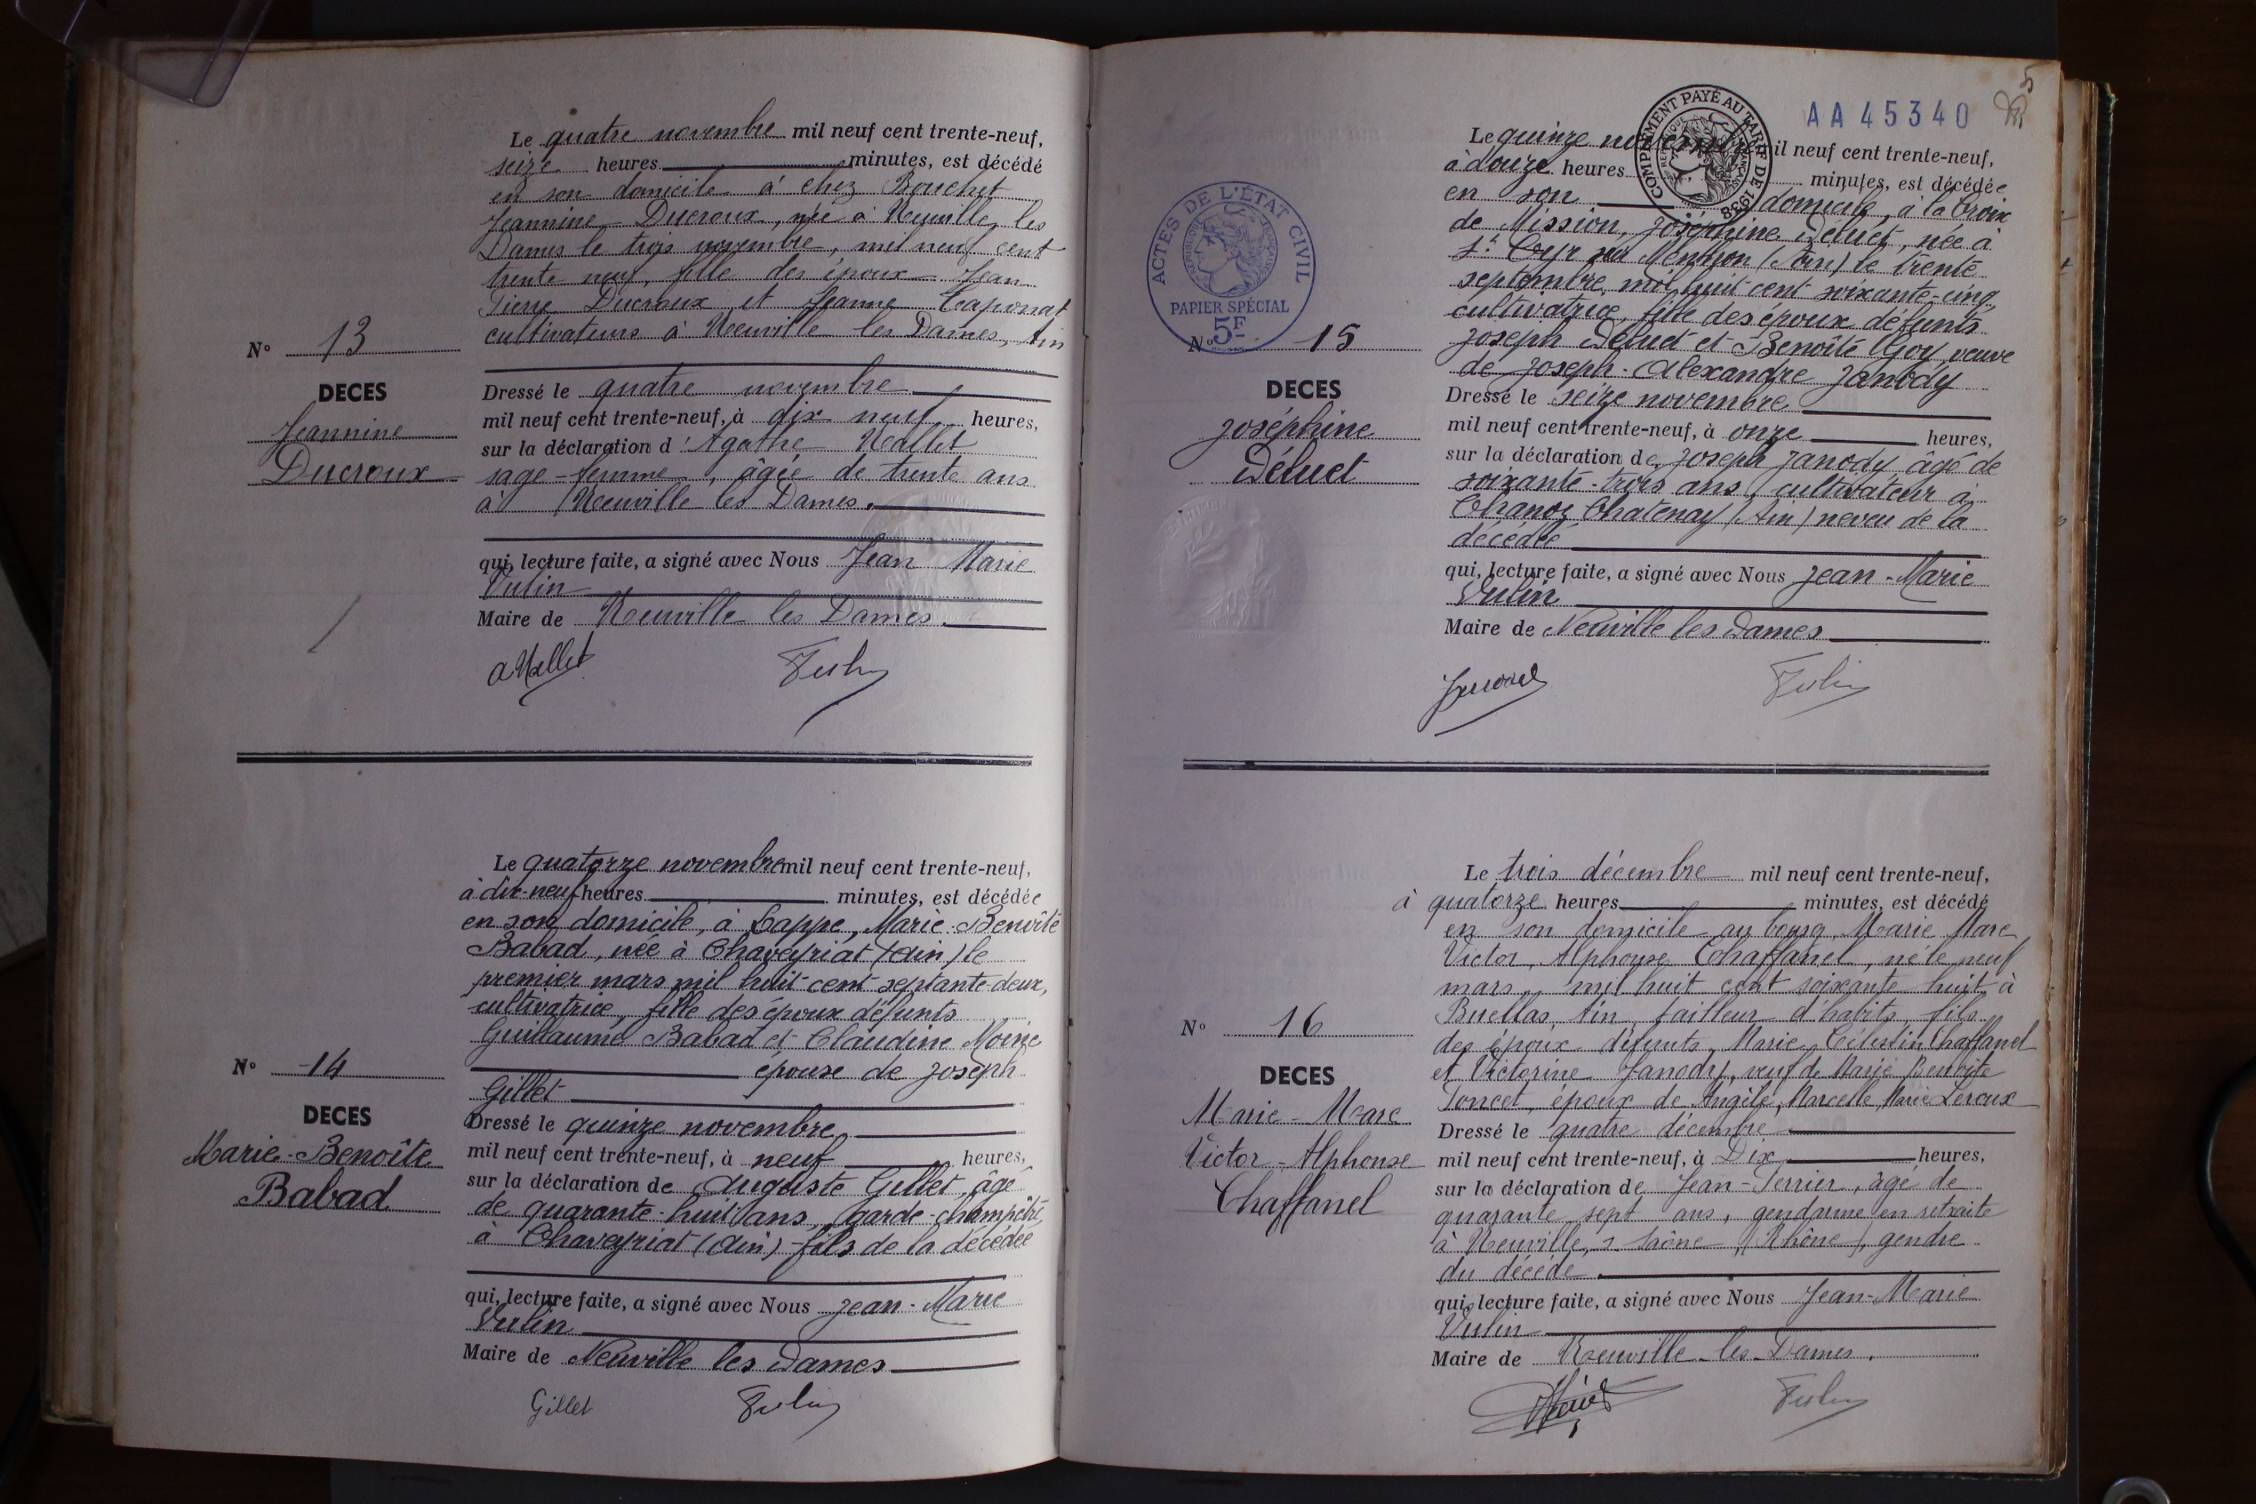 Le quatre novembre mil neuf cent trente-neuf,
seize heures minutes, est décédé
en son domicile à chez Bouchet
Jeannine Ducroux, née à Neuville les
Dames le trois novembre, mil neuf cent
trente neuf, fille des époux Jean
Pierre Ducroux et Jeanne Caponat
cultivateurs à Neuville les Dames, Ain
N° 13
DECES
Jeannine
Ducroux
Dressé le quatre novembre
mil neuf cent trente-neuf, à dix neuf heures,
sur la déclaration d'Agathe Nallet
sage-femme, âgée de trente ans
à Neuville les Dames.
qui, lecture faite, a signé avec Nous Jean Marie
Vulin
Maire de Neuville les Dames.
A Nallet Vulin
Le quatorze novembre mil neuf cent trente-neuf,
à dix-neuf heures minutes, est décédée
en son domicile, à Cappe, Marie-Benoîte
Babad, née à Chaveyriat (Ain) le
premier mars mil huit cent septante-deux,
cultivatrice, fille des époux défunts
Guillaume Babad et Claudine Moine
épouse de Joseph
Gillet
N° 14
DECES
Marie-Benoîte
Babad
Dressé le quinze novembre
mil neuf cent trente-neuf, à neuf heures,
sur la déclaration de Auguste Gillet, âgé
de quarante-huit ans, garde-champêtre
à Chaveyriat (Ain) fils de la décédée
qui, lecture faite, a signé avec Nous Jean-Marie
Vulin
Maire de Neuville les Dames
Gillet Vulin
5
AA 45340
COMPLÉMENT PAYÉ AU TARIF DE 1938
Le quinze novembre mil neuf cent trente-neuf,
à douze heures minutes, est décédée
en son domicile, à la Croix
de Mission, Joséphine Déluet, née à
St Cyr sur Menthon (Ain) le trente
septembre, mil huit cent soixante-cinq,
cultivatrice, fille des époux défunts
Joseph Déluet et Benoîte Goy, veuve
de Joseph-Alexandre Janody
ACTES DE L'ÉTAT CIVIL
PAPIER SPÉCIAL
5F
N° 15
DECES
Joséphine
Déluet
Dressé le seize novembre
mil neuf cent trente-neuf, à onze heures,
sur la déclaration de Joseph Janody âgé de
soixante-trois ans, cultivateur à
Chanoz Chatenay (Ain) neveu de la
décédée
qui, lecture faite, a signé avec Nous Jean-Marie
Vulin
Maire de Neuville les Dames
Vulin
Le trois décembre mil neuf cent trente-neuf,
à quatorze heures minutes, est décédé
en son domicile au bourg, Marie Marc
Victor, Alphonse Chaffanel, né le neuf
mars, mil huit cent soixante huit à
Buellas, Ain, tailleur d'habits, fils
des époux défunts, Marie Célestin Chaffanel
et Victorine Janody, veuf de Marie Benoîte
Poncet, époux de Angèle, Marcelle, Marie Leroux
N° 16
DECES
Marie-Marc
Victor-Alphonse
Chaffanel
Dressé le quatre décembre
mil neuf cent trente-neuf, à Dix heures,
sur la déclaration de Jean-Perrier, âgé de
quarante sept ans, gendarme en retraite
à Neuville, s. Saône, (Rhône), gendre
du décédé.
qui, lecture faite, a signé avec Nous Jean-Marie
Vulin
Maire de Neuville-les-Dames.
Vulin